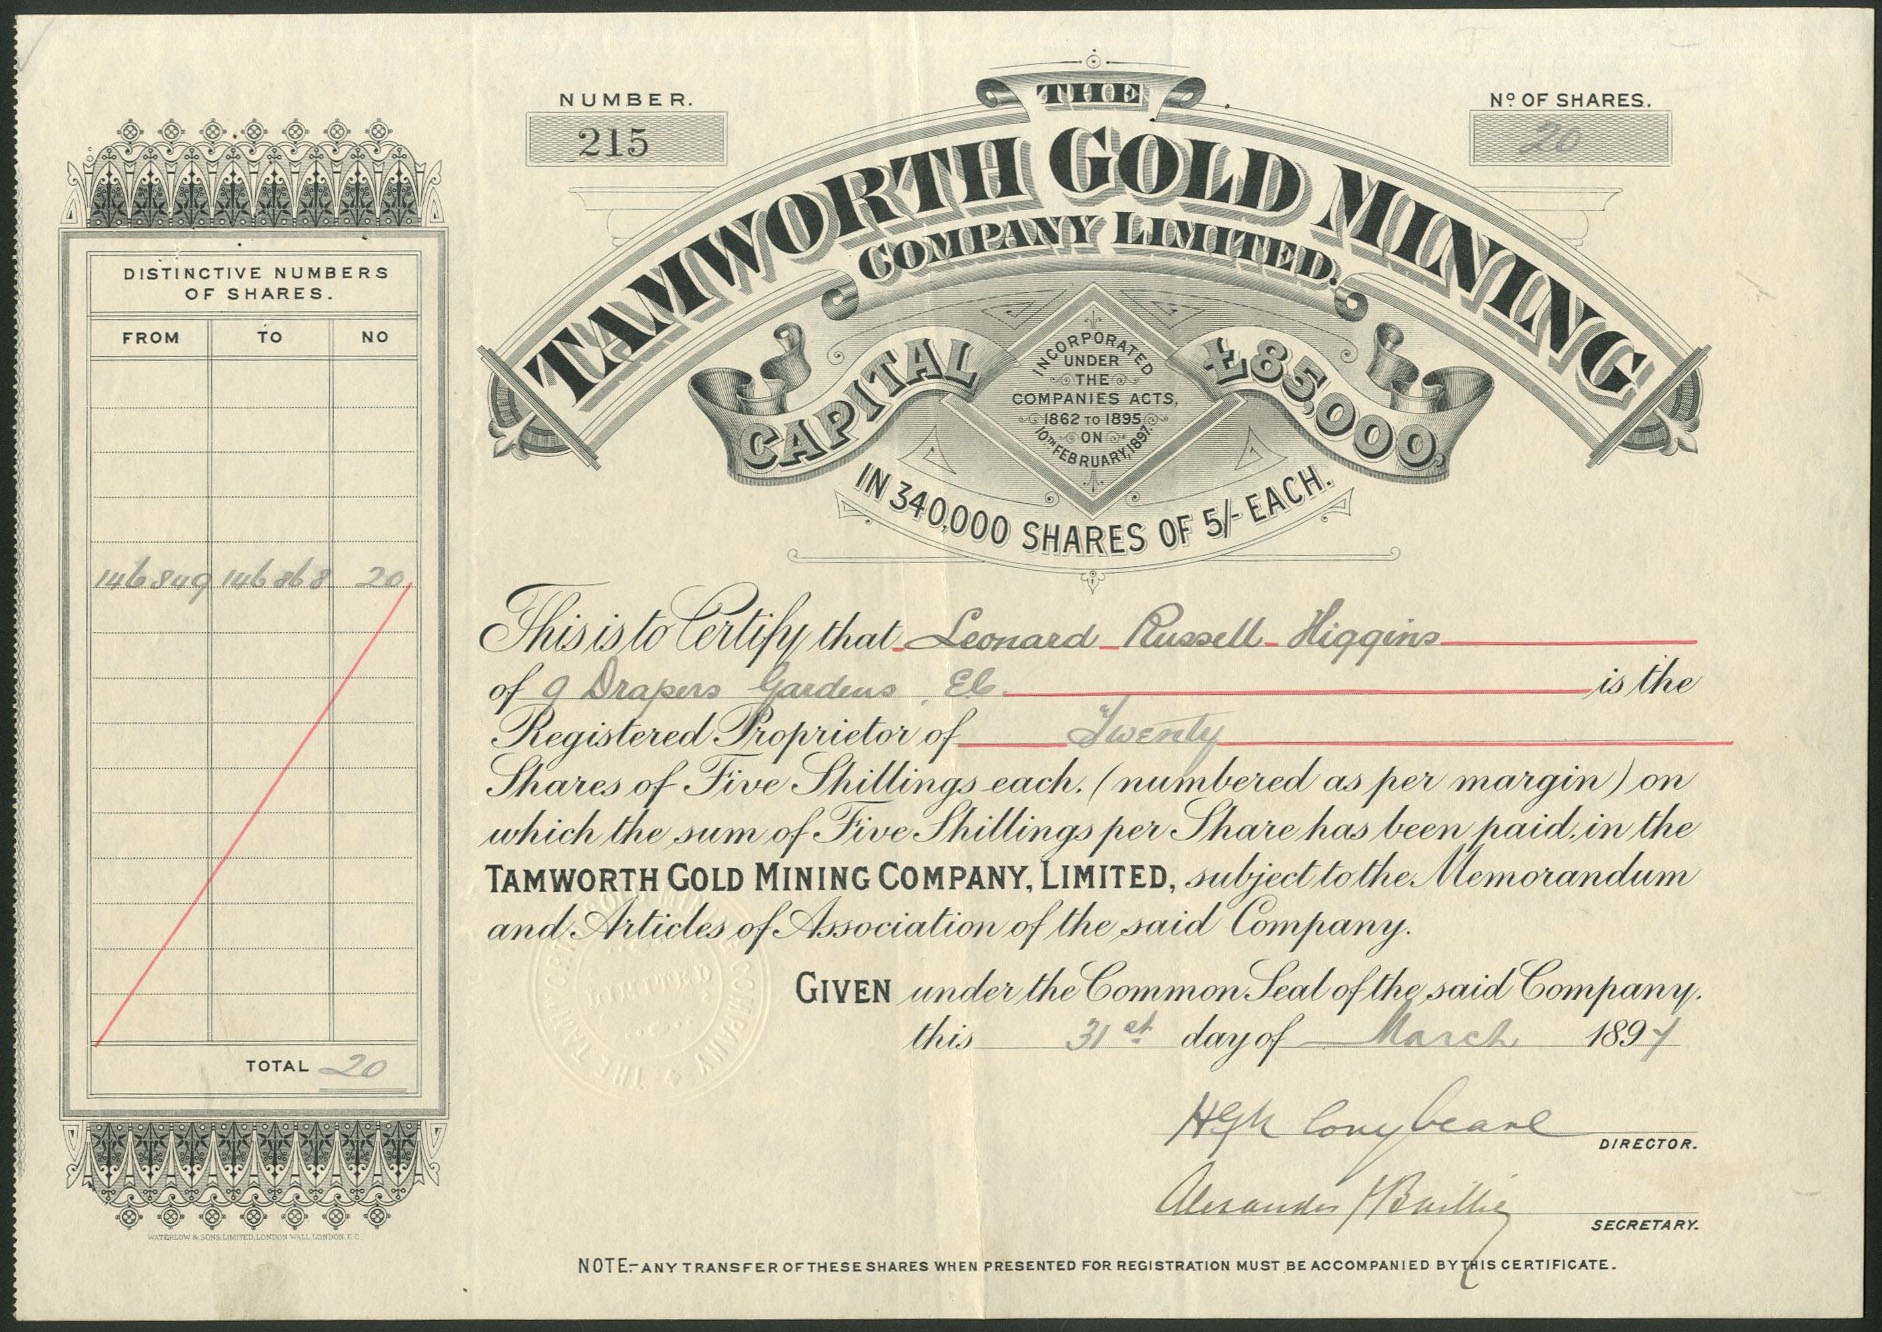 NUMBER.
215
Nº OF SHARES.
20
THE
TAMWORTH GOLD MINING
COMPANY LIMITED.
CAPITAL £85,000,
INCORPORATED
UNDER
THE
COMPANIES ACTS,
1862 TO 1895
ON
10TH FEBRUARY, 1897.
IN 340,000 SHARES OF 5/- EACH.
DISTINCTIVE NUMBERS
OF SHARES.
FROM TO NO
146849 146868 20
TOTAL 20
This is to Certify that Leonard Russell Higgins
of 9 Drapers Gardens, E.C. is the
Registered Proprietor of Twenty
Shares of Five Shillings each. (numbered as per margin) on
which the sum of Five Shillings per Share has been paid, in the
TAMWORTH GOLD MINING COMPANY, LIMITED, subject to the Memorandum
and Articles of Association of the said Company.
GIVEN under the Common Seal of the said Company.
this 31st day of March 1897
Conybeare
DIRECTOR.
Alexander J Baillie
SECRETARY.
THE TAMWORTH GOLD MINING COMPANY
LIMITED
WATERLOW & SONS, LIMITED, LONDON WALL, LONDON, E.C.
NOTE:- ANY TRANSFER OF THESE SHARES WHEN PRESENTED FOR REGISTRATION MUST BE ACCOMPANIED BY THIS CERTIFICATE.